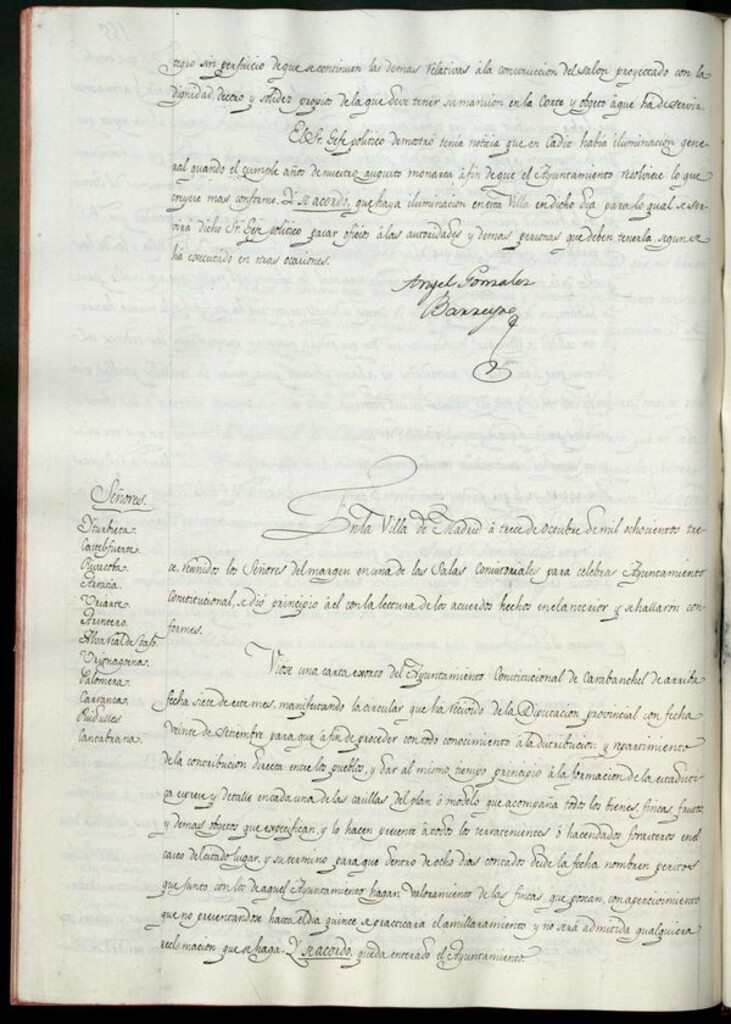 tegro sin perjuicio de que se continuen las demas relativas á la construccion del salon proyectado con la
dignidad, decoro y solidez propios de la que deve tener su mansion en la Corte y objeto á que ha de servir.
El Sr. Gefe politico demostró tenia noticia que en Cadiz habia iluminacion gene-
ral quando el cumple años de nuestro augusto monarca á fin de que el Ayuntamiento resolviese lo que
creyese mas conforme. Y se acordó, que haya iluminacion en esta Villa en dicho dia para lo qual se ser-
virá dicho Sr. Gefe politico pasar oficios á las autoridades y demas personas que deben tenerla, segun se
ha executado en otras ocasiones.
Angel Gonzalez
Barreyro
Señores.
Yturbieta.
Castelfuerte.
Aratia.
Uriarte.
Printero.
Alcovcal de
Urionagoena.
Palomera.
Carranza.
Ruidulles
Cantabrana.
En la Villa de Madrid á trece de Octubre de mil ochocientos tre-
ce, reunidos los Señores del margen en una de las Salas Consistoriales para celebrar Ayuntamiento
Constitucional, se dió principio á el con la lectura de los acuerdos hechos en el anterior y se hallaron con-
formes.
Vióse una carta exorto del Ayuntamiento Constitucional de Carabanchel de arriba
fecha siete de este mes, manifestando la circular que ha recivido de la Diputacion provincial con fecha
veinte de Setiembre para que á fin de proceder con todo conocimiento á la distribucion y repartimiento
de la contribucion directa entre los pueblos, y dar al mismo tiempo principio á la formacion de la estadisti-
ca exprese y detalle en cada una de las casillas del plan ó modelo que acompaña todos los bienes, fincas, frutos,
y demas objetos que especifican, y lo hacen presente á todos los terratenientes ó hacendados forasteros en el
casco del citado lugar, y su termino para que dentro de ocho dias contados desde la fecha nombren peritos
que junto con los de aquel Ayuntamiento hagan valoramiento de las fincas que posean, con apercivimiento
que no presentandose hasta el dia quince se practicara el amillaramiento y no será admitida qualquiera
reclamacion que se haga. Y se acordó, queda enterado el Ayuntamiento.